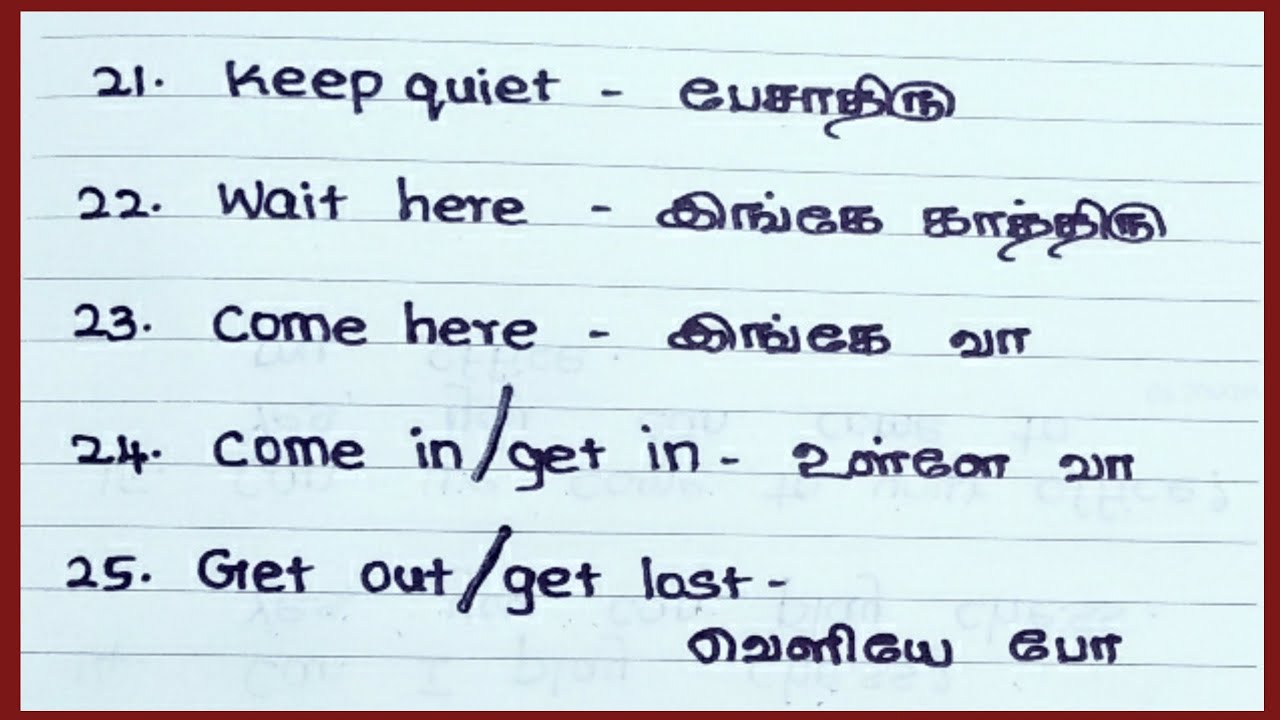 21. Keep quiet - பேசாதிரு
22. Wait here - இங்கே காத்திரு
23. Come here - இங்கே வா
24. Come in/get in - உள்ளே வா
25. Get out/get lost -
வெளியே போ